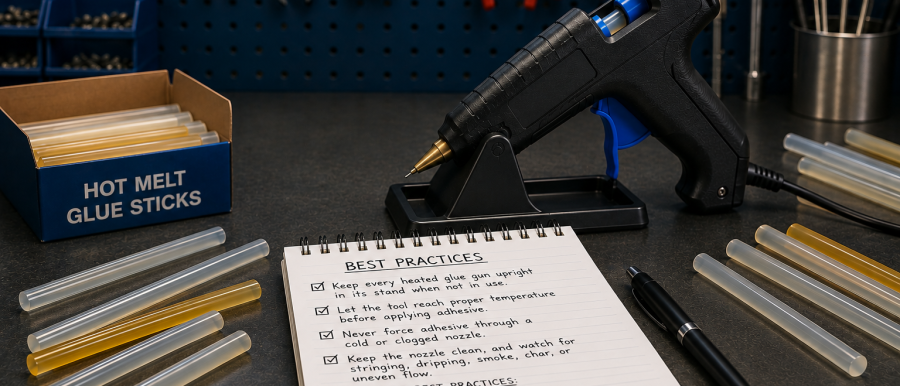 HOT MELT
GLUE STICKS
BEST PRACTICES
Keep every heated glue gun upright
in its stand when not in use.
Let the tool reach proper temperature
before applying adhesive.
Never force adhesive through a
cold or clogged nozzle.
Keep the nozzle clean, and watch for
stringing, dripping, smoke, char, or
uneven flow.
BEST PRACTICES: